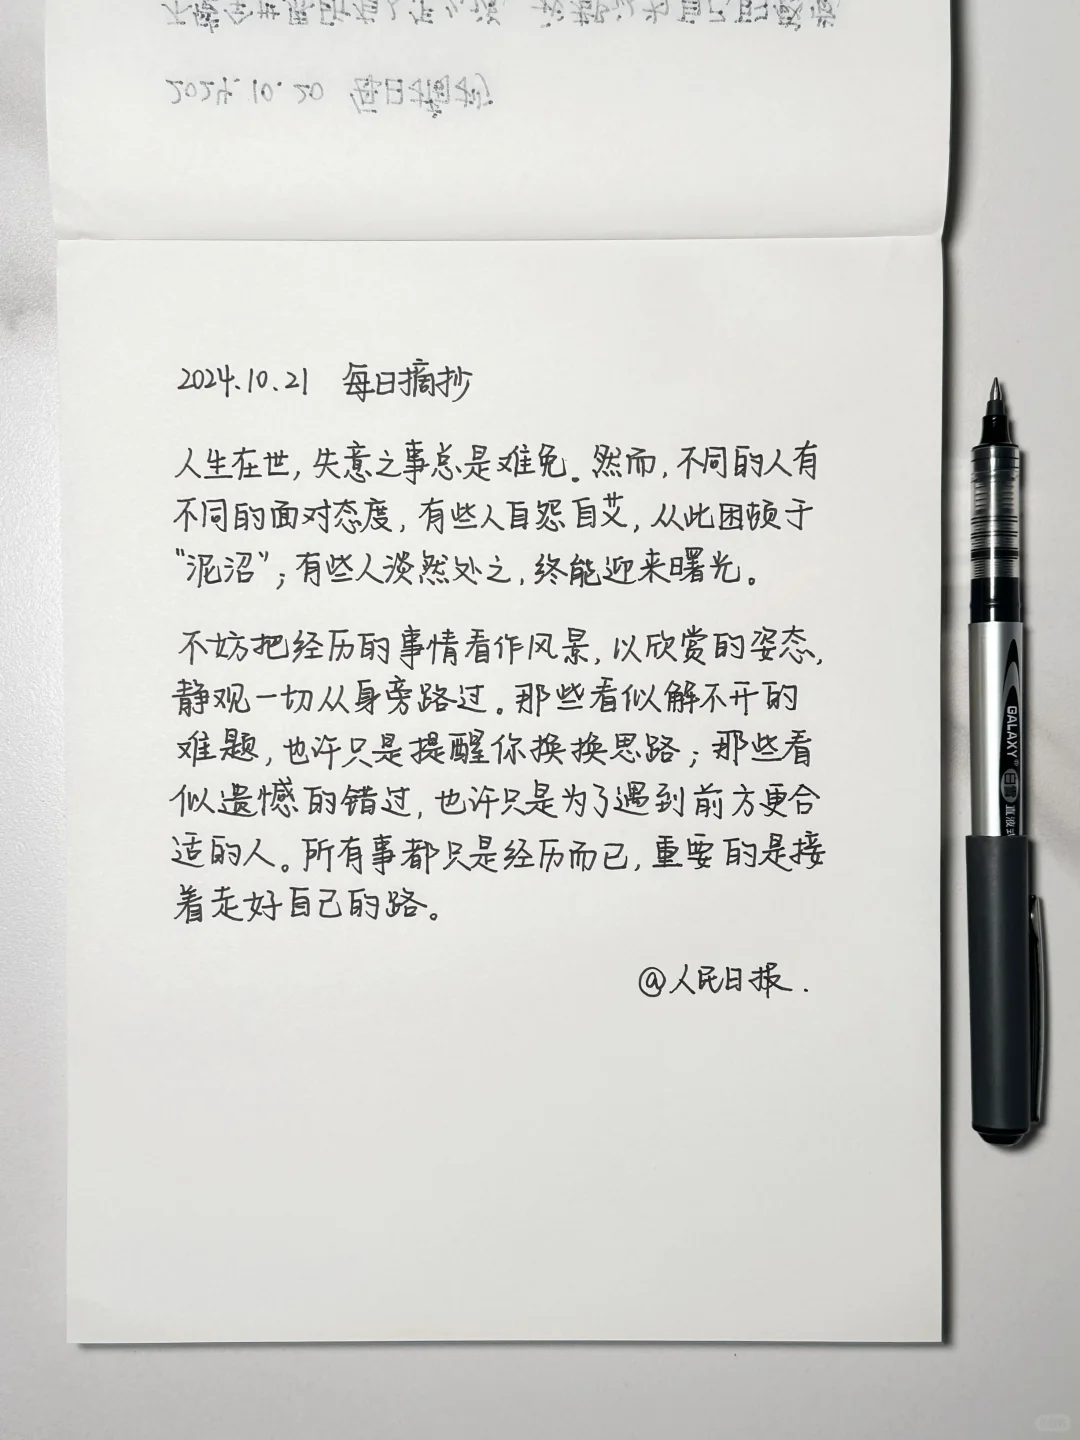 2024.10.20 每日摘抄
2024.10.21 每日摘抄
人生在世,失意之事总是难免。然而,不同的人有
不同的面对态度,有些人自怨自艾,从此困顿于
“泥沼”;有些人淡然处之,终能迎来曙光。
不妨把经历的事情看作风景,以欣赏的姿态,
静观一切从身旁路过。那些看似解不开的
难题,也许只是提醒你换换思路;那些看
似遗憾的错过,也许只是为了遇到前方更合
适的人。所有事都只是经历而已,重要的是接
着走好自己的路。
@人民日报.
GALAXY
直液式